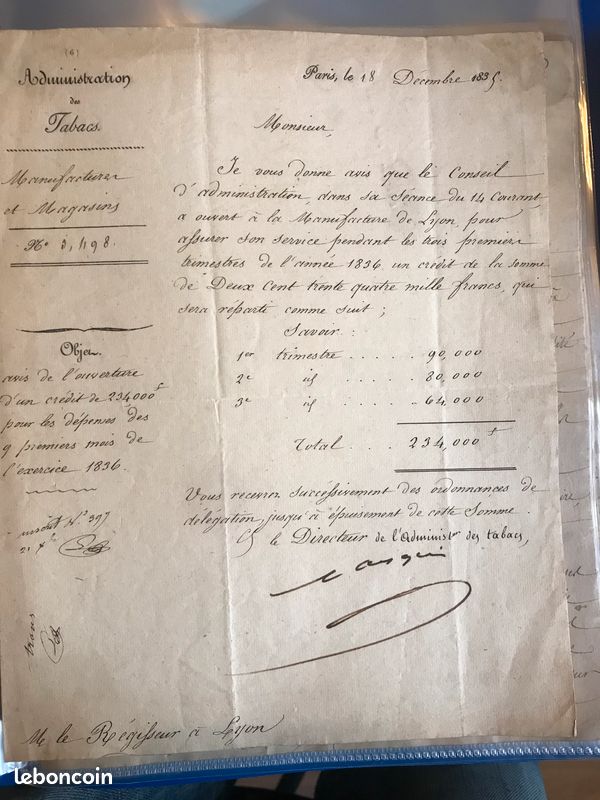 (6)
Administration
des
Tabacs.
Manufactures
et Magasins
No 3,498.
Objet.
avis de l'ouverture
d'un crédit de 234,000 f
pour les dépenses des
9 premiers mois de
l'exercice 1836.
No 397
Paris, le 18 Décembre 1835.
Monsieur,
Je vous donne avis que le Conseil
d'administration, dans sa Séance du 14 Courant
a ouvert à la Manufacture de Lyon, pour
assurer son service pendant les trois premiers
trimestres de l'année 1836 un crédit de la somme
de Deux Cent trente quatre mille francs, qui
sera réparti comme suit ;
Savoir :
1er trimestre . . . . 90,000
2e id . . . . . 80,000
3e id . . . . . 64,000
Total . . . 234,000 f
Vous recevrez successivement des ordonnances de
délégation, jusqu'à épuisement de cette somme.
le Directeur de l'Administr. des tabacs,
M. le Régisseur à Lyon
leboncoin